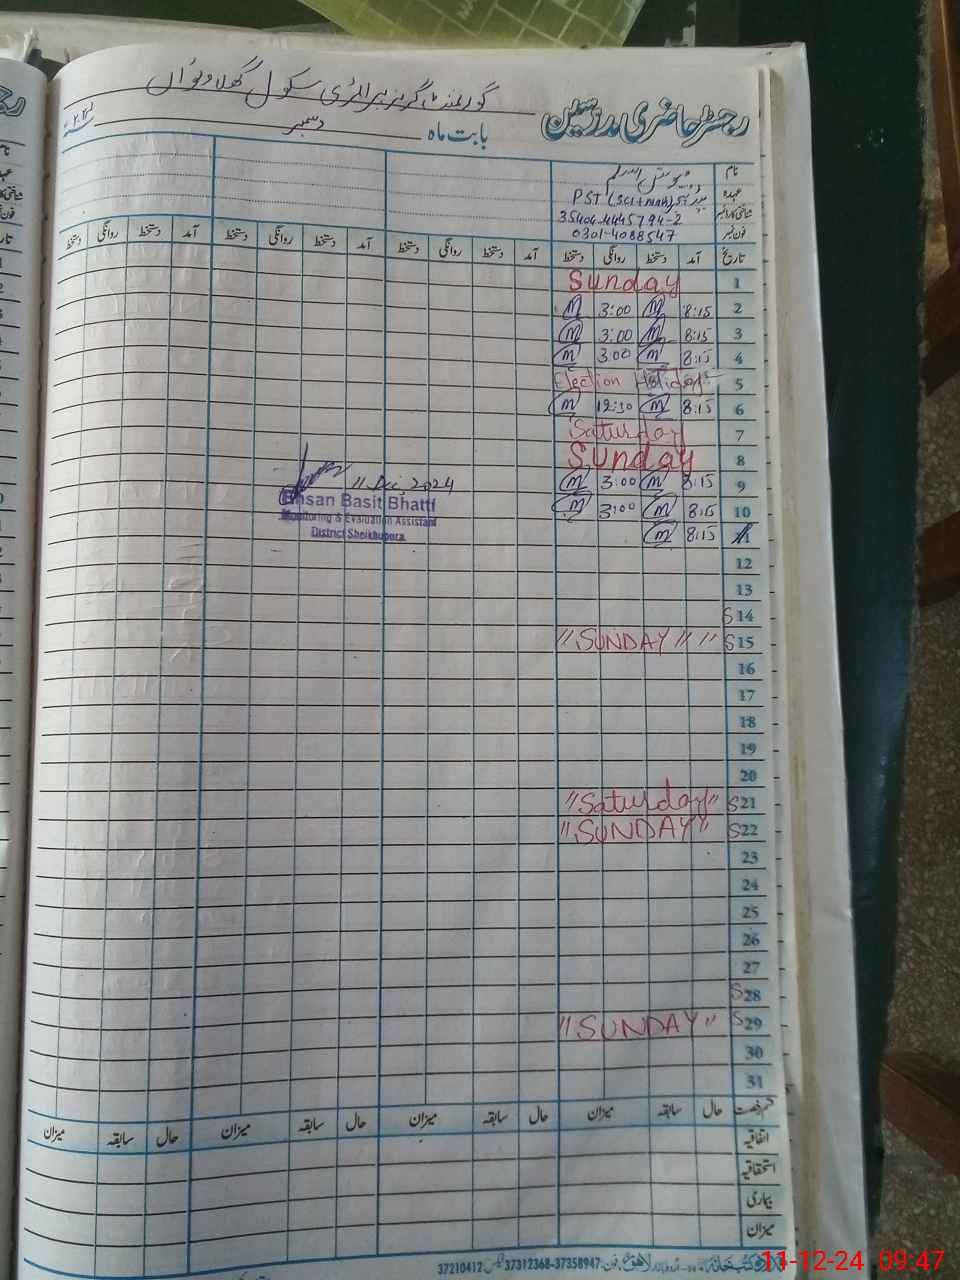 گورنمنٹ گرلز پرائمری سکول گھلا ویواں
رجسٹر حاضری مدرسین
بابت ماہ دسمبر
نام
عہدہ PST (SCI+Math)
شناختی کارڈ نمبر 35404-4445794-2
فون نمبر 0301-4088547
تاریخ آمد دستخط روانگی دستخط آمد دستخط روانگی دستخط آمد دستخط روانگی دستخط آمد دستخط روانگی دستخط
1 Sunday
2 8:15 m 3:00 m
3 8:15 m 3:00 m
4 8:15 m 3:00 m
5 Election Holiday
6 8:15 m 12:30 m
7 Saturday
8 Sunday
9 8:15 m 3:00 m
11 Dec, 2024
10 8:15 m 3:00 m
Ehsan Basit Bhatti
Monitoring & Evaluation Assistant
District Sheikhupura
11 8:15 m
12
13
S 14
S 15 "SUNDAY" "
16
17
18
19
20
S 21 "Saturday"
S 22 "SUNDAY"
23
24
25
26
27
S 28
S 29 "SUNDAY"
30
31
قسم رخصت حال سابقہ میزان حال سابقہ میزان حال سابقہ میزان حال سابقہ میزان
اتفاقیہ
استحقاقیہ
بیماری
میزان
لاہور فون: 37358947-37312368 فیکس 37210412
11-12-24 09:47